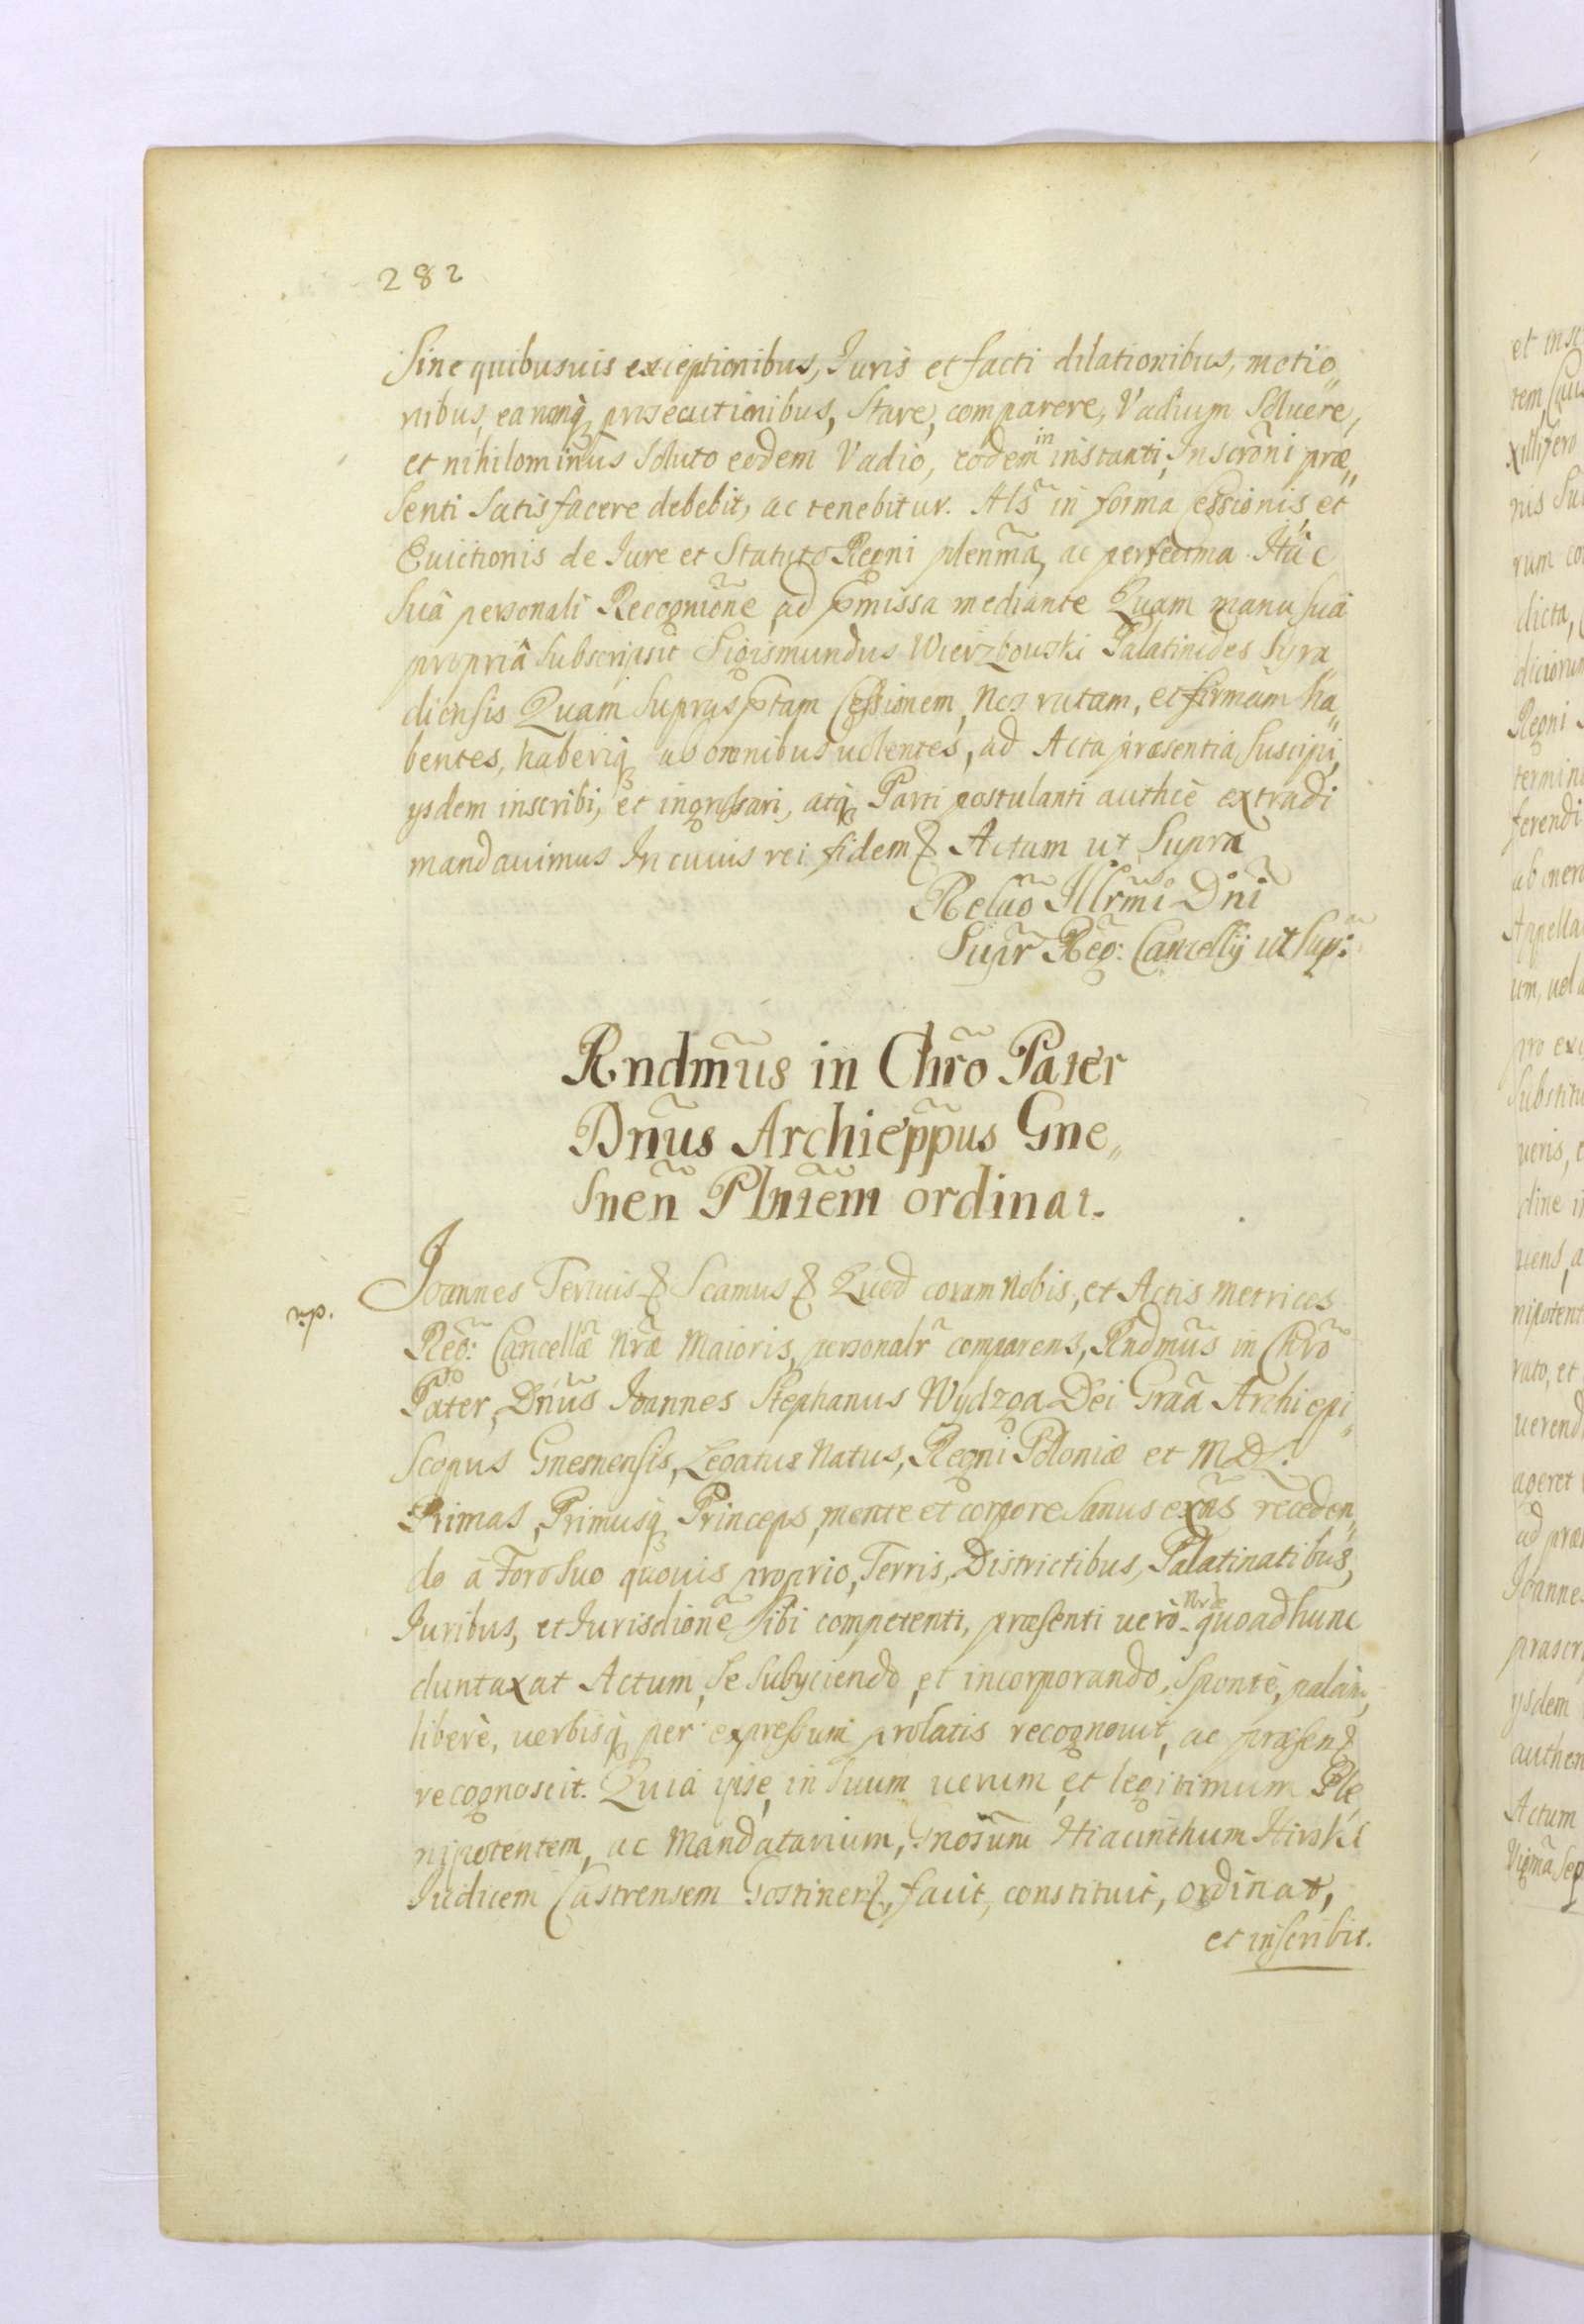 282
Sine quibusuis exceptionibus, Iuris et facti dilationibus, motio„
nibus, earumq, prosecutionibus, Stare, comparere, Vadium Soluere,
et nihilominus Soluto eodem Vadio, eodem in instanti, Inscrõni præ„
Senti Satisfacere debebit, ac tenebitur. Als̃ in forma Cessionis, et
Euictionis de Iure et Statuto Regni plenm̃a, ac perfectma Hac
Suâ personali Recogniõne, ad p̃missa mediante Quam manu Suâ
propriâ Subscripsit Sigismundus Wierzbowski Palatinides Syra„
diensis Quam Supras ptam Cessionem, Nos ratam, et firmam ha„
bentes, haberiq ab omnibus uolentes, ad Acta præsentia Suscipi,
ysdem inscribi, et ingrossari, atq Parti postulanti authcè extradi
mandauimus In cuius rei fidem Actum ut Supra
Relaõ Illr̃mi Dñi
Supr̃ Reg: Cancellÿ ut Sup:
Rndm̃us in Chr̃o Pater
Dñus Archiep̃pus Gne„
Sneñ Plñtem ordinat.
np.
Ioannes Tertius Scamus Quod coram Nobis, et Actis Metrices
Reg: Cancellæ Nr̃æ Maioris, personalr̃ comparens, Rndmũs in Chr̃o
Pater, Dñus Ioannes Stephanus Wydzga Dei Graã Archiepi„
Scopus Gnesnensis, Legatus Natus, Regni Poloniæ et M.D.L.
Primas, Primusq Princeps, mente et corpore Sanus exñs receden„
do â Foro Suo quouis proprio, Terris, Districtibus, Palatinatibus,
Iuribus, et Iurisdiõne Sibi competenti, præsenti uerò Nr̃æ quoad hunc
duntaxat Actum, Se Subyciendo, et incorporando, Sponte, palàm,
liberè, uerbisq per expressum prolatis recognouit, ac præsen
recognoscit. Quia ipse, in Suum uerum, et legitimum Ple„
nipotentem, ac Mandatarium, Gnosum Hiacinthum
Iudicem Castrensem Gostinen, facit, constituit, ordinat,
et inscribit.